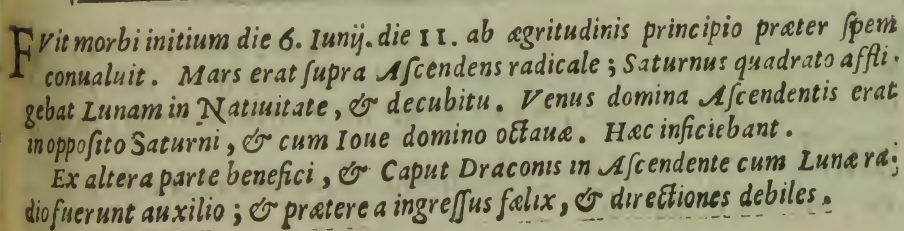 FVit morbi initium die 6. Iunij. die 11. ab ægritudinis principio præter ſpem
conualuit. Mars erat ſupra Aſcendens radicale; Saturnus quadrato affli-
gebat Lunam in Natiuitate, & decubitu. Venus domina Aſcendentis erat
in oppoſito Saturni, & cum Ioue domino octauæ. Hæc inficiebant.
Ex altera parte benefici, & Caput Draconis in Aſcendente cum Lunæ ra-
dio fuerunt auxilio; & præterea ingreſſus fælix, & directiones debiles.